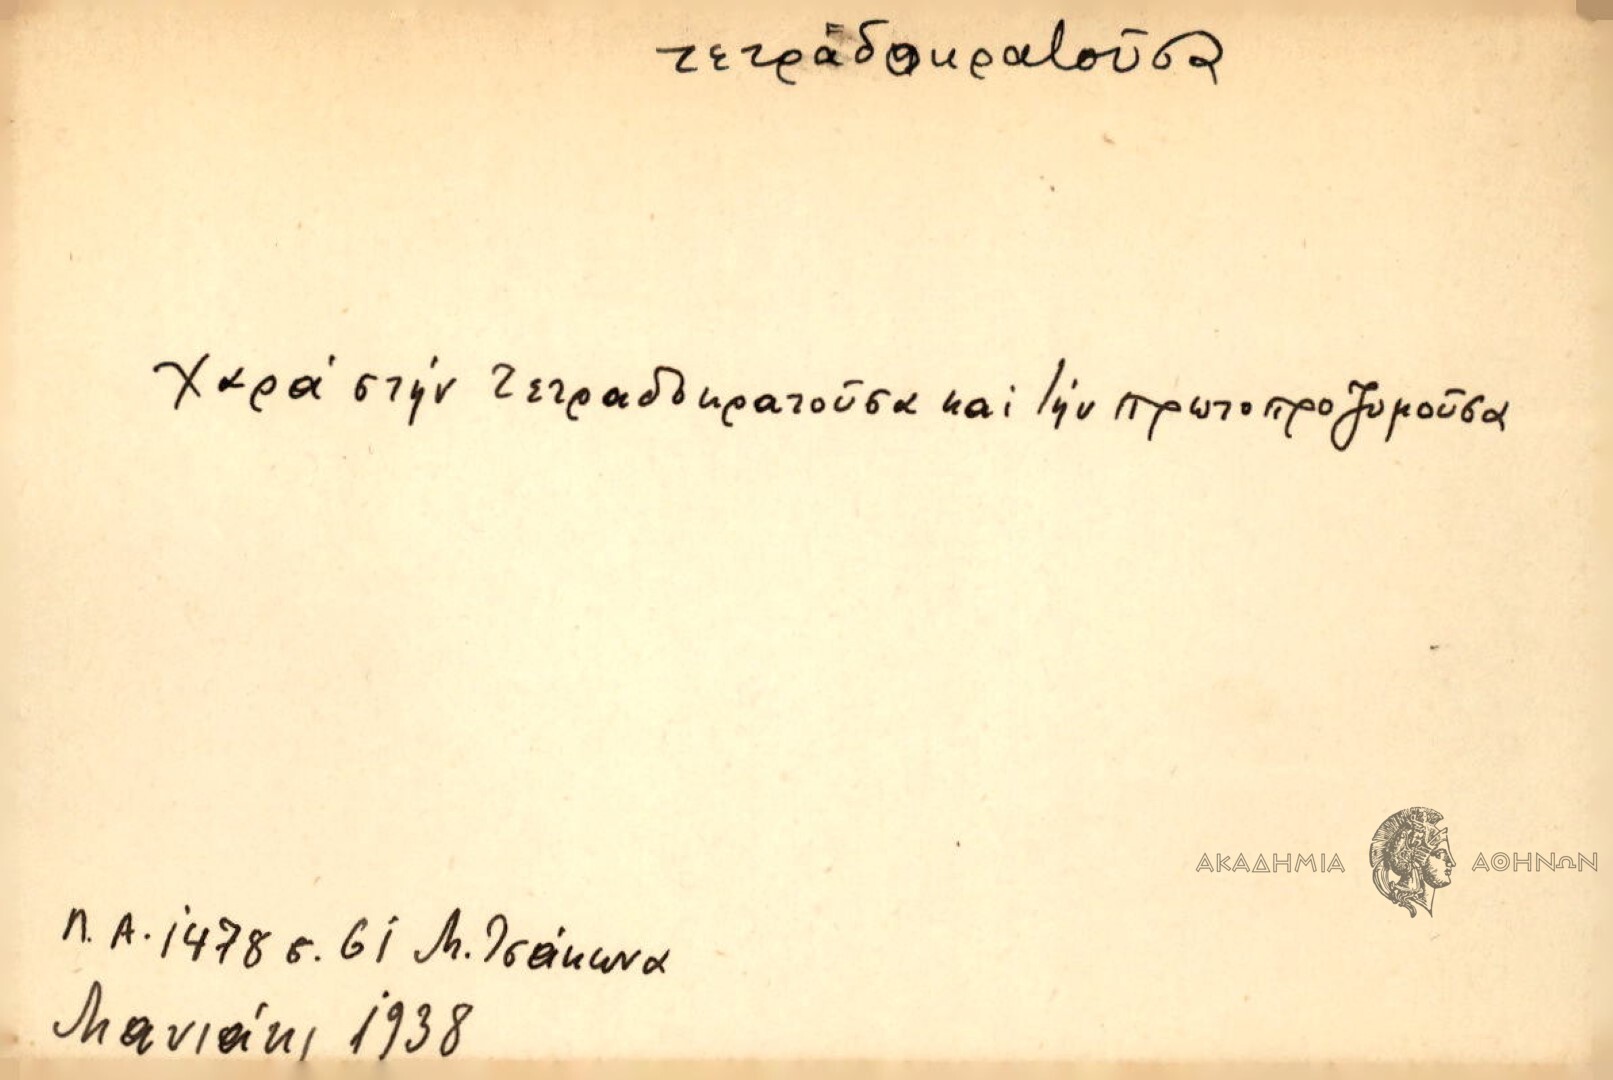 τετραδοκρατοῦσα
Χαρά στήν τετραδοκρατοῦσα καί τήν πρωτοπροζυμοῦσα
ΑΚΑΔΗΜΙΑ ΑΘΗΝΩΝ
Λ. Α. 1478 σ. 61 Μ. Τσάκωνα
Μανιάκι 1938